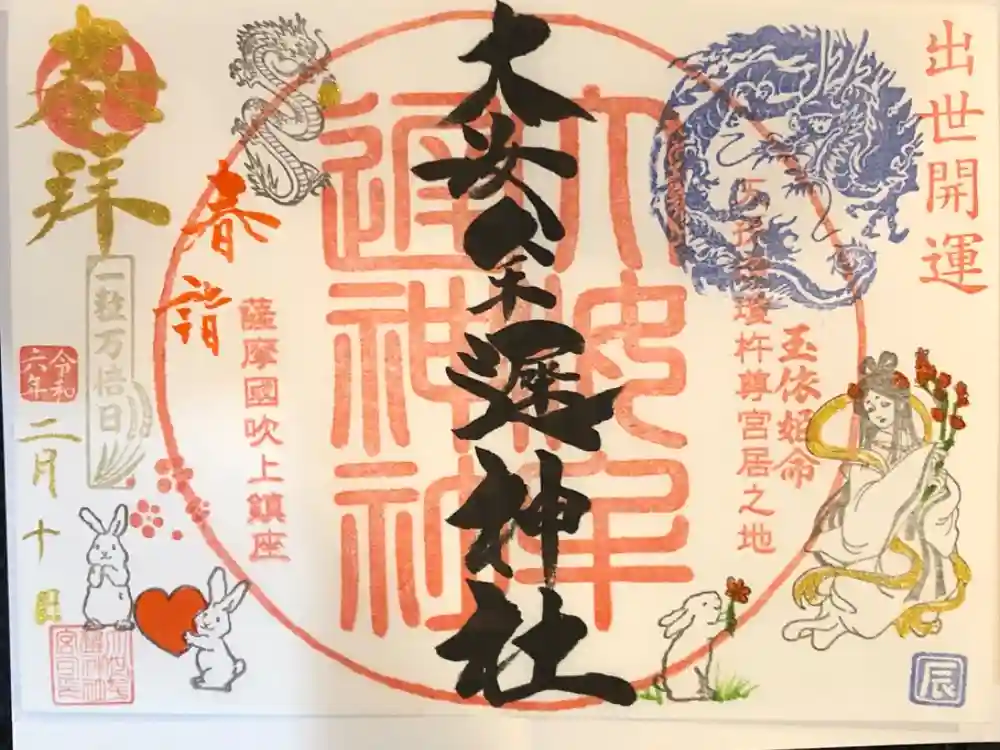 出世開運
玉依姫命
瓊杵尊宮居之地
辰
大汝牟遲神社
大汝牟遲神社
薩摩國吹上鎮座
春詣
奉拝
一粒万倍日
令和六年
二月十日